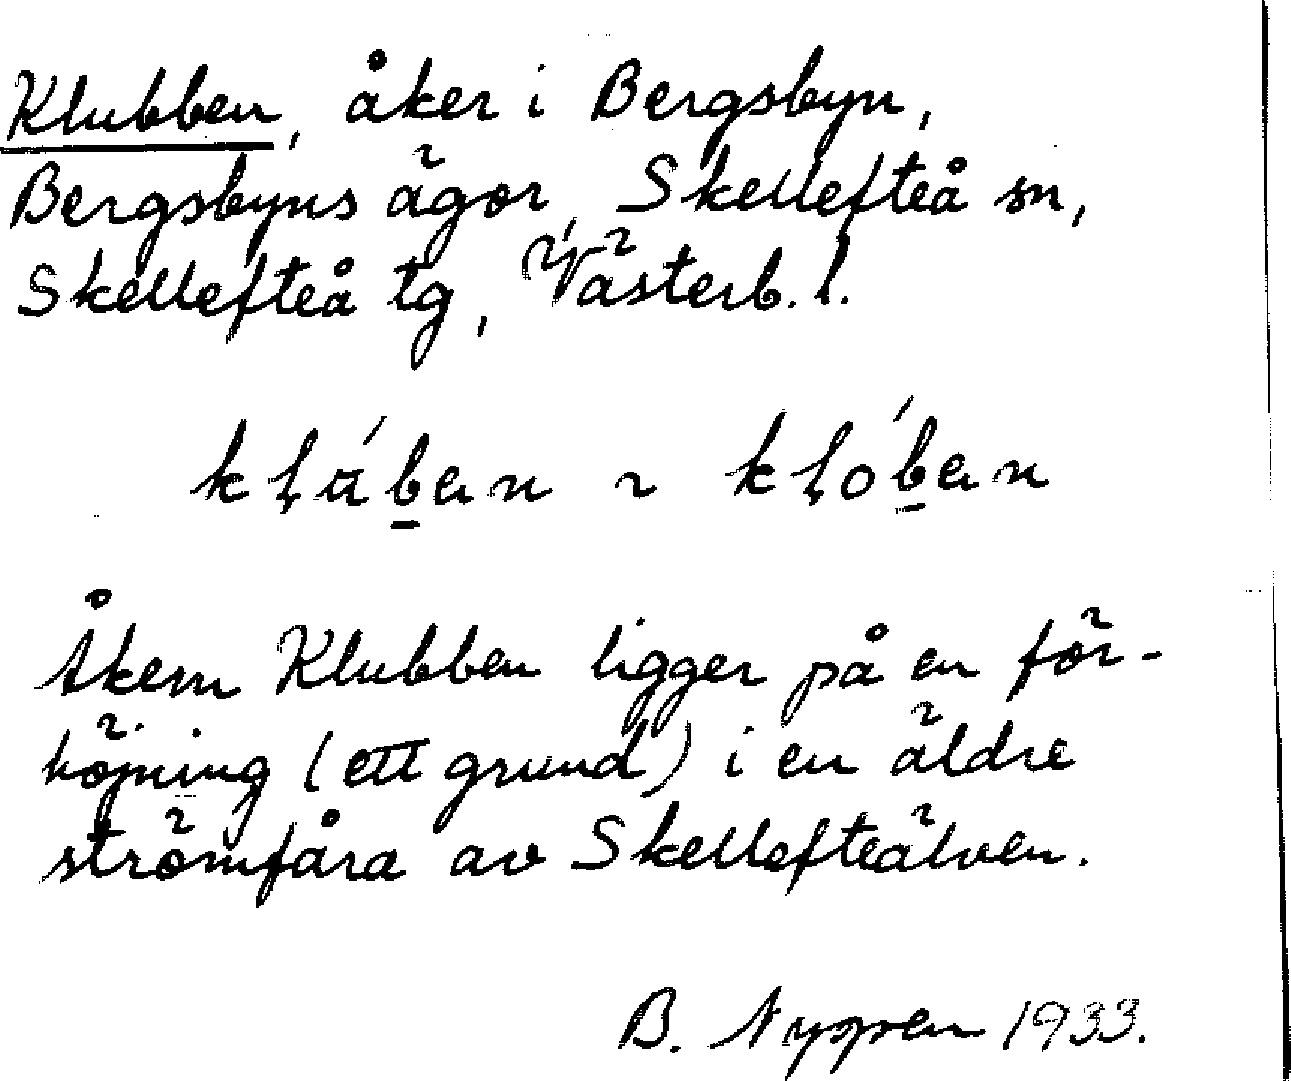 Klubben, åker i Bergsbyn,
Bergsbyns ägor, Skellefteå sn,
Skellefteå tg, Västerb. l.
klu̇́b̲ən ~ kló́b̲ən
Åkern Klubben ligger på en för-
höjning (ett grund) i en äldre
strömfåra av Skellefteälven.
B. Nyppen 1933.